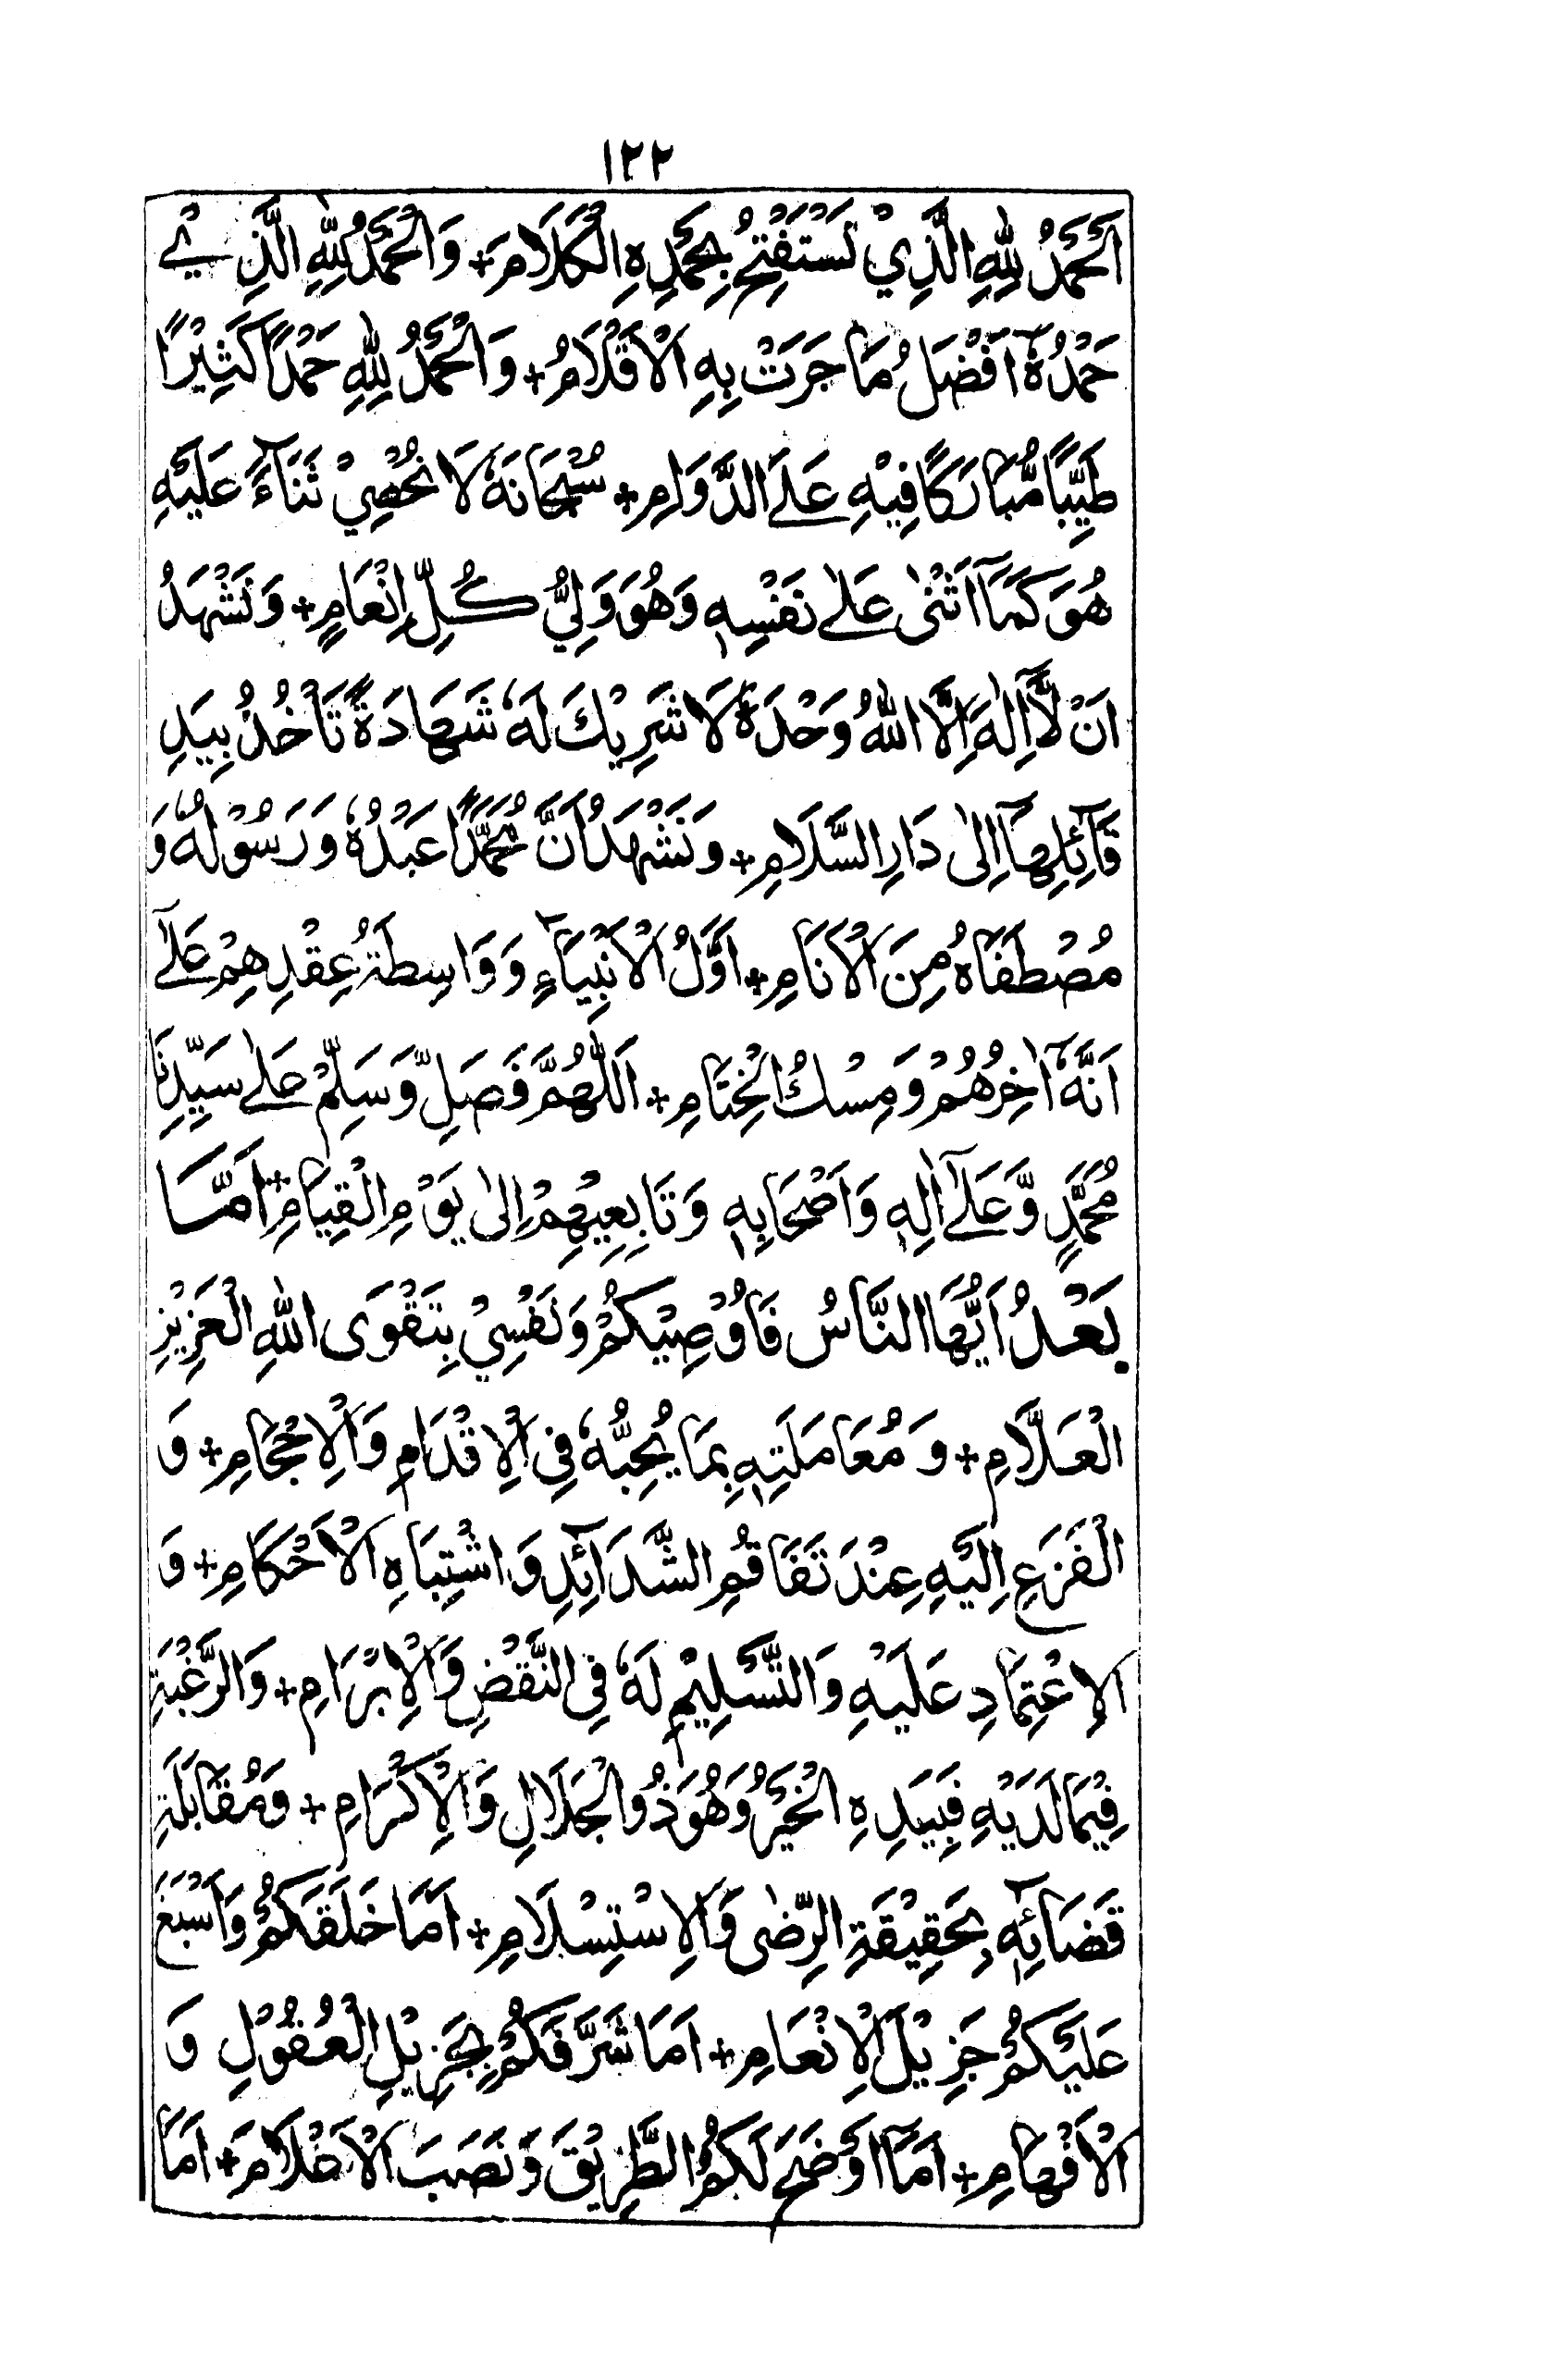 ١٢٢
اَلْحَمْدُ لِلّٰهِ الَّذِيْ نَسْتَفْتِحُ بِحَمْدِهِ الْكَلَامَ + وَالْحَمْدُ لِلّٰهِ الَّذِيْ
حَمْدُهٗٓ اَفْضَلُ مَا جَرَتْ بِهِ الْاَقْلَامُ + وَالْحَمْدُ لِلّٰهِ حَمْدًا كَثِيْرًا
طَيِّبًا مُّبَارَكًا فِيْهِ عَلَے الدَّوَامِ + سُبْحَانَهٗ لَا نُحْصِيْ ثَنَآءً عَلَيْهِ
هُوَ كَمَآ اَثْنٰى عَلٰے نَفْسِهٖ وَهُوَ وَلِيُّ كُلِّ اِنْعَامٍ + وَنَشْهَدُ
اَنْ لَّآ اِلٰهَ اِلَّا اللّٰهُ وَحْدَهٗ لَا شَرِيْكَ لَهٗ شَهَادَةً تَأْخُذُ بِيَدِ
قَآئِلِهَآ اِلٰى دَارِ السَّلَامِ + وَنَشْهَدُ اَنَّ مُحَمَّدًا عَبْدُهٗ وَرَسُوْلُهٗ وَ
مُصْطَفَاهُ مِنَ الْاَنَامِ + اَوَّلُ الْاَنْبِيَآءِ وَوَاسِطَةُ عِقْدِهِمْ عَلٰٓے
اَنَّهٗٓ اٰخِرُهُمْ وَمِسْكُ الْخِتَامِ + اَللّٰهُمَّ فَصَلِّ وَسَلِّمْ عَلٰے سَيِّدِنَا
مُحَمَّدٍ وَّعَلٰٓے اٰلِهٖ وَاَصْحَابِهٖ وَتَابِعِيْهِمْ اِلٰى يَوْمِ الْقِيَامِ + اَمَّا
بَعْدُ اَيُّهَا النَّاسُ فَاُوْصِيْكُمْ وَنَفْسِيْ بِتَقْوَى اللّٰهِ الْعَزِيْزِ
الْعَلَّامِ + وَمُعَامَلَتِهٖ بِمَا يُحِبُّهٗ فِى الْاِقْدَامِ وَالْاِحْجَامِ + وَ
الْفَزَعِ اِلَيْهِ عِنْدَ تَفَاقُمِ الشَّدَآئِدِ وَاشْتِبَاهِ الْاَحْكَامِ + وَ
الِاعْتِمَادِ عَلَيْهِ وَالتَّسْلِيْمِ لَهٗ فِى النَّقْضِ وَالْاِبْرَامِ + وَالرَّغْبَةِ
فِيْمَا لَدَيْهِ فَبِيَدِهِ الْخَيْرُ وَهُوَ ذُو الْجَلَالِ وَالْاِكْرَامِ + وَمُقَابَلَةِ
قَضَآئِهٖ بِحَقِيْقَةِ الرِّضٰى وَالِاسْتِسْلَامِ + اَمَا خَلَقَكُمْ وَاَسْبَغَ
عَلَيْكُمْ جَزِيْلَ الْاِنْعَامِ + اَمَا شَرَّفَكُمْ بِجَزِيْلِ الْعُقُوْلِ وَ
الْاَفْهَامِ + اَمَآ اَوْضَحَ لَكُمُ الطَّرِيْقَ وَنَصَبَ الْاَعْلَامَ + اَمَا